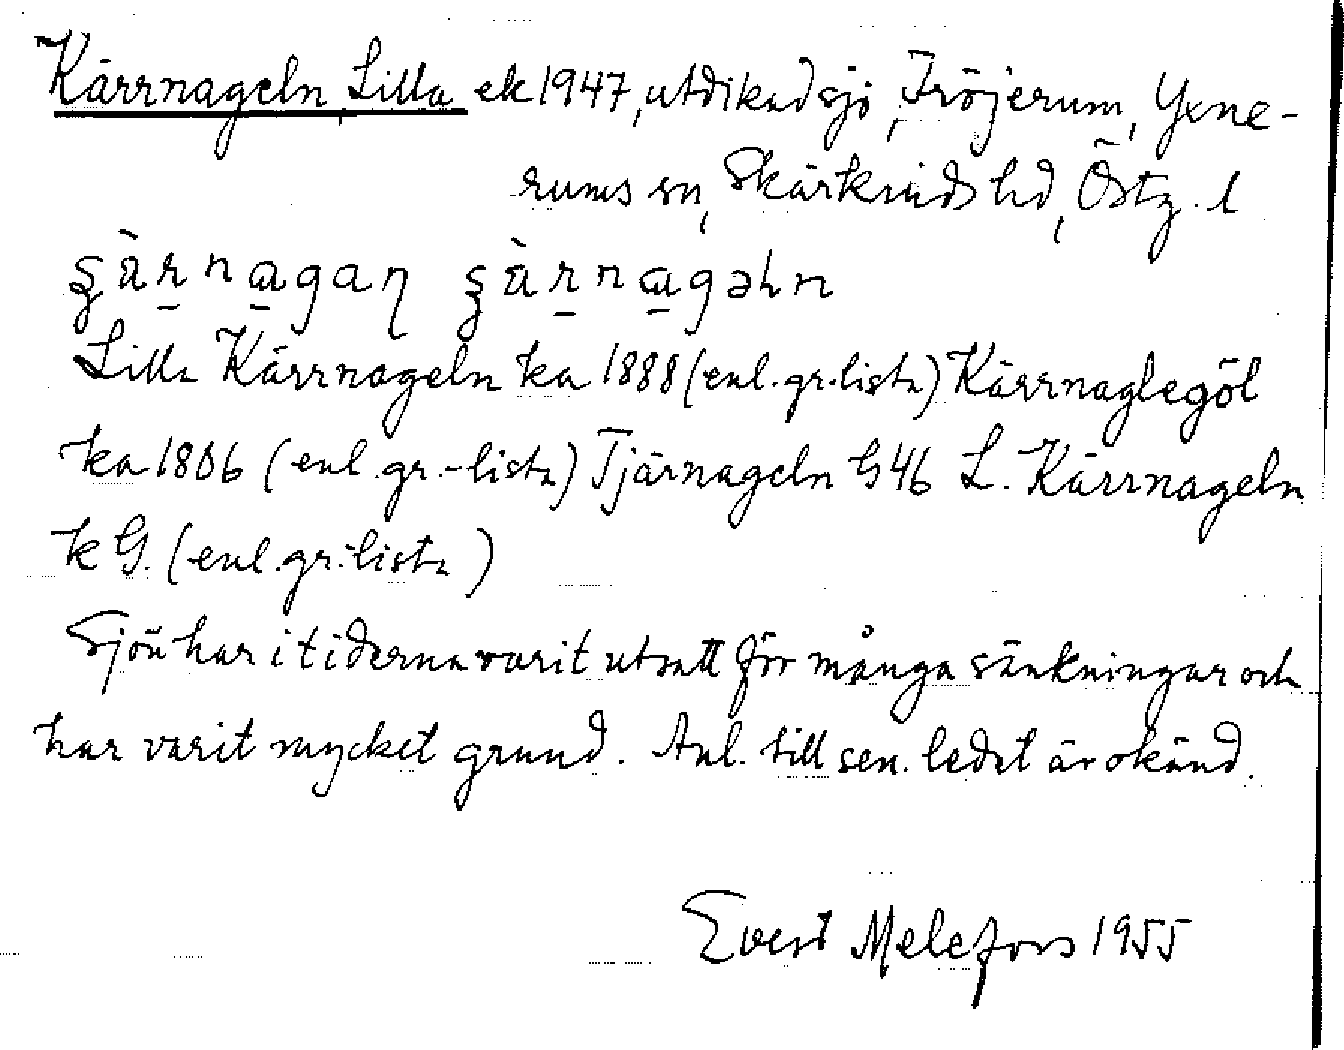 Kärrnageln, Lilla ek 1947, utdikad sjö, Fröjerum, Yxne-
rums sn, Skärkinds hd, Östg. l
Lilla Kärrnageln ka 1888 (enl. gr.-lista) Kärrnaglegöl
ka 1806 (enl. gr.-lista) Tjärnageln G 46 L. Kärrnageln
k G. (enl. gr.-lista)
Sjön har i tiderna varit utsatt för många sänkningar och
har varit mycket grund. Anl. till sen. ledet är okänd.
Evert Melefors 1955